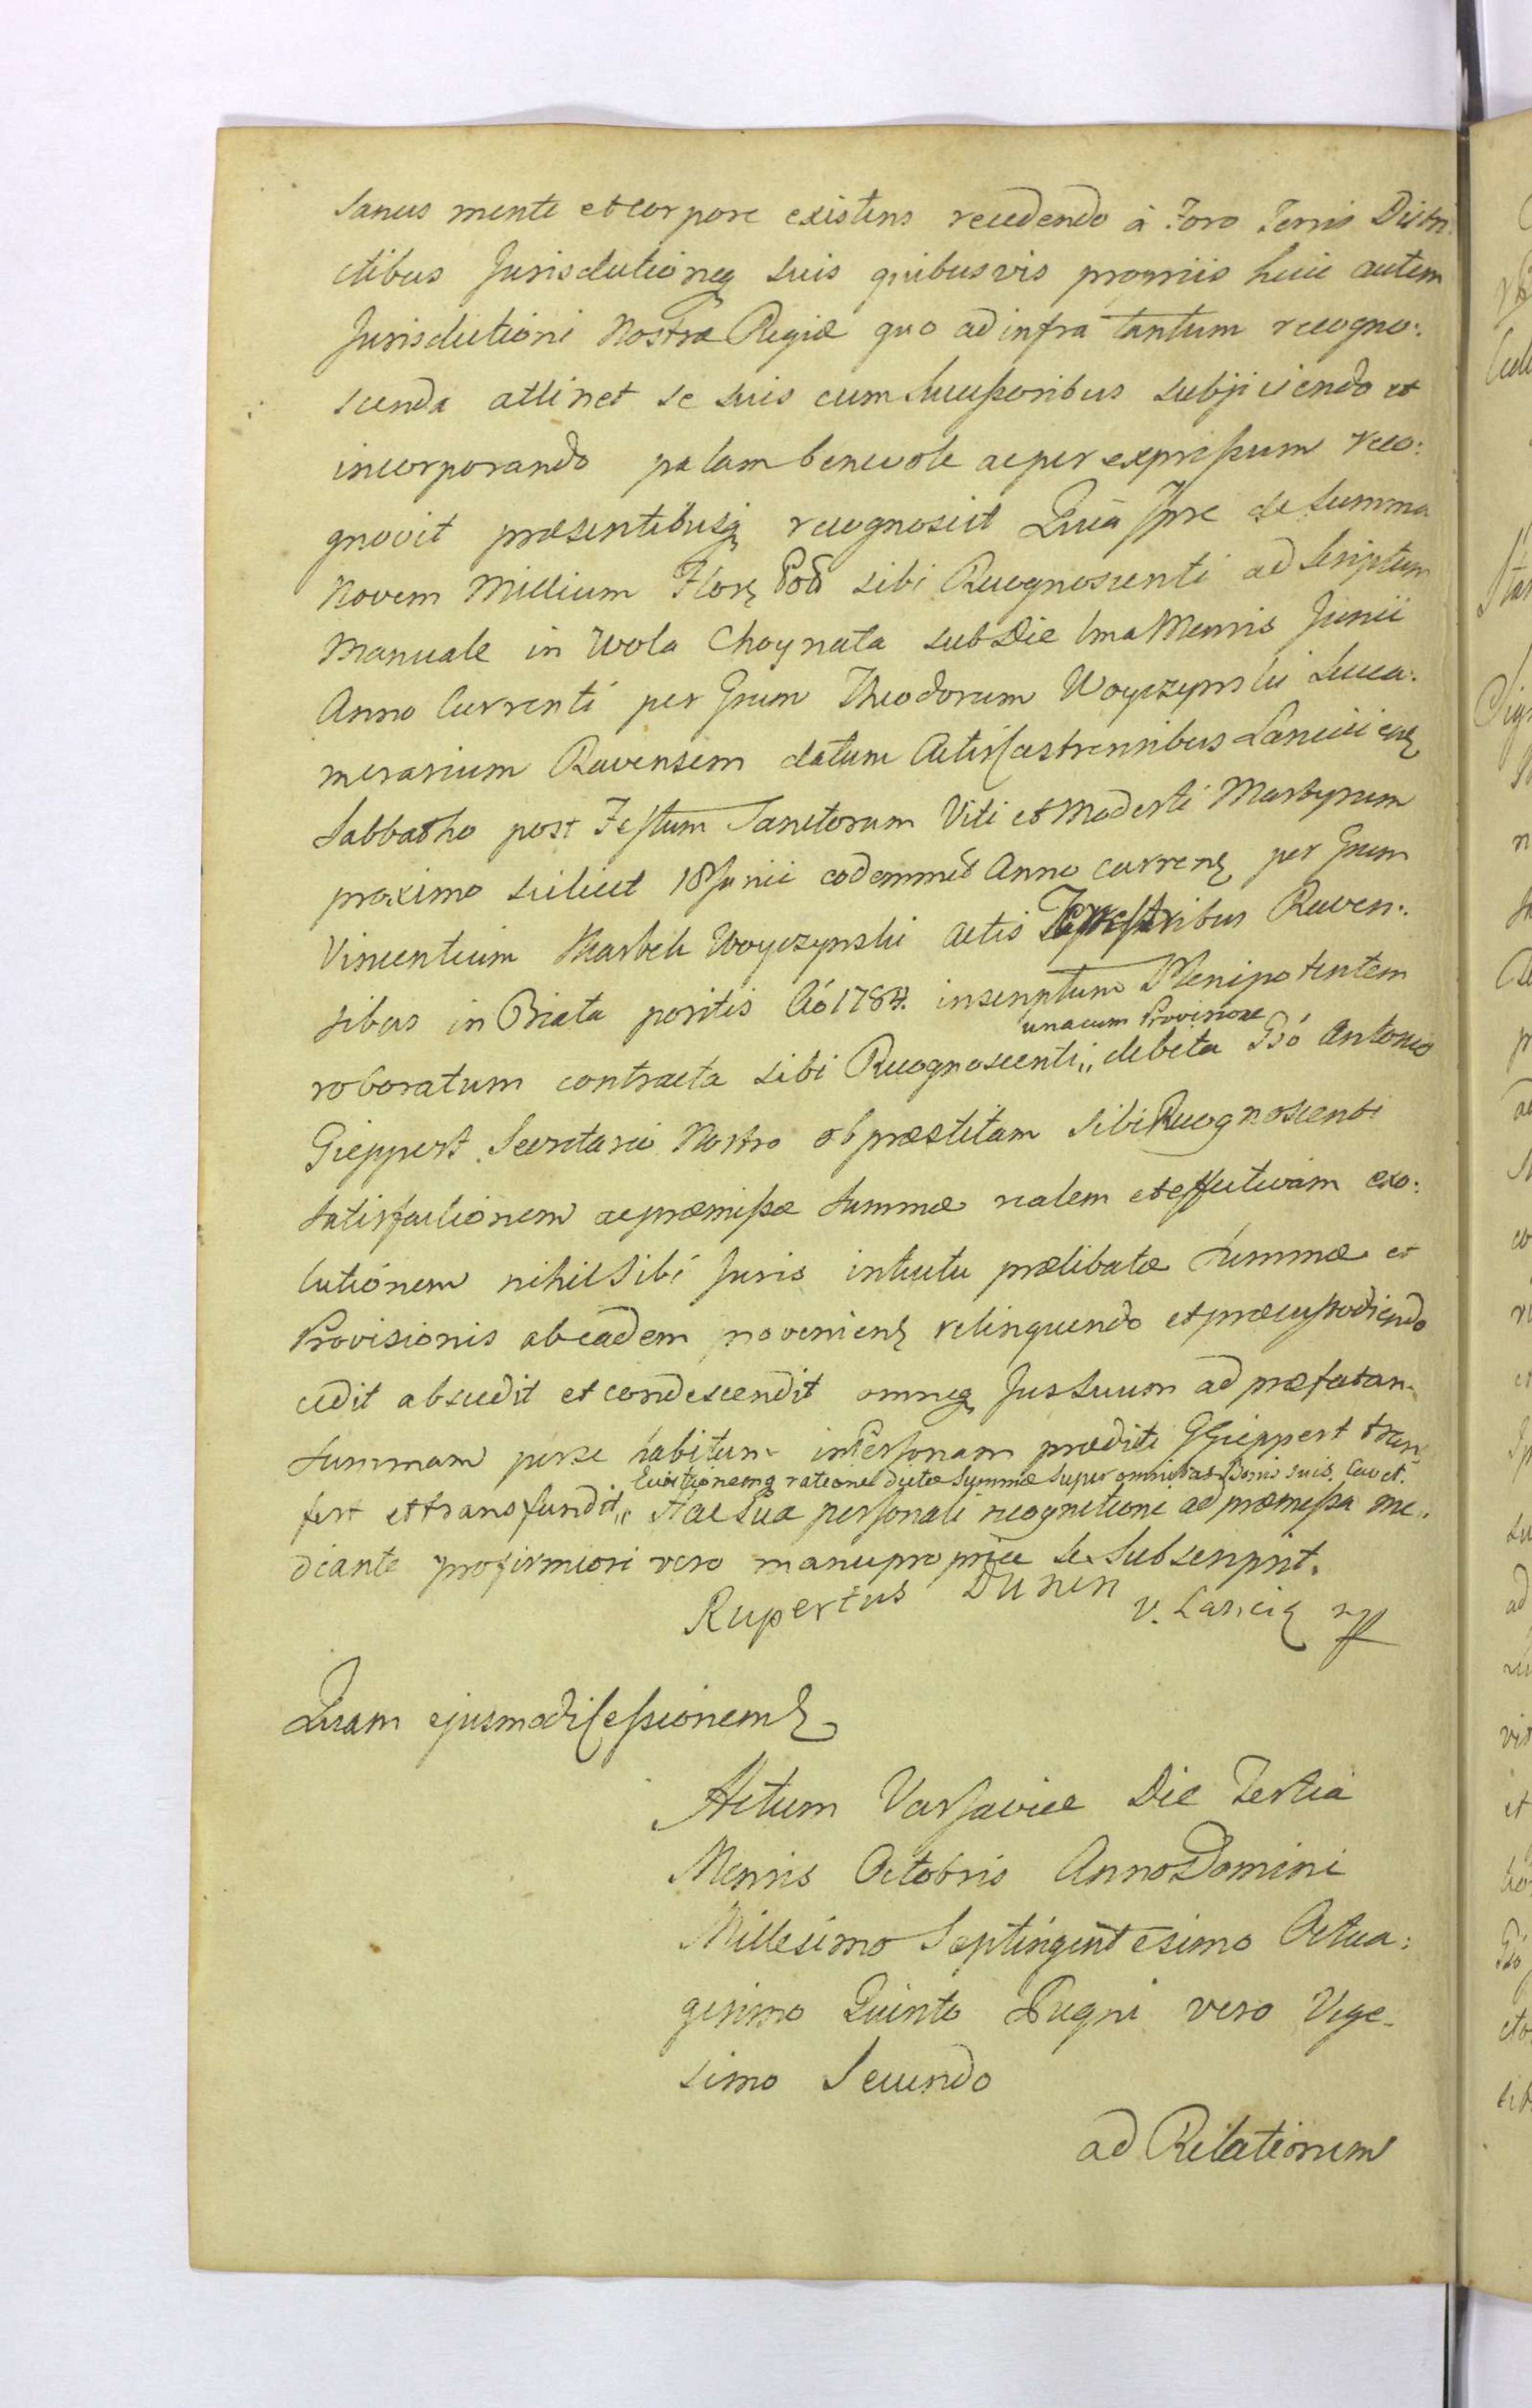 Sanus mente et corpore existens recedendo à Foro Terris Distri
ctibus Jurisdictioneq suis quibusvis propriis huic autem
Jurisdictioni Nostræ Regiæ quo ad infra tantum recogno:
scenda attinet se suis cum Successoribus subjiciendo et
incorporando palam benevole ac per expressum reco:
gnovit præsentibusq recognoscit Quia Ipse de Summa
Novem Millium Flor Pol sibi Recognoscenti ad Scriptum
Manuale in Wola Choynata sub Die 1ma Mensis Junii
Anno Currenti per Grum Theodorum Woyczynski Succa:
merarium Ravensem datum Actis Castrensibus Lancicien
Sabbatho post Festum Sanctorum Viti et Modesti Martyrum
proximo scilicet 18 Junii eodemmet Anno curren per Grum
Vincentium Woyczynski Actis Terrestribus Raven:
sibus in Biała positis Aó 1784. inscriptum Plenipotentem
roboratum contracta sibi Recognoscenti „ debita Gsó Antonio
unacum Provisione
Gieppert Secretario Nostro ob præstitam sibi Recognoscenti
Satisfactionem ac præmissæ Summæ realem et effectivam exo:
lutionem nihil Sibi Juris intuitu prælibatæ Summæ et
Provisionis ab eadem provenien relinquendo et præcustodiendo
cedit abscedit et condescendit omneq Jus Suum ad præfatam
Summam per se habitum in Personam prædicti G Gieppert trans
fert et transfundit „ Hac Sua personali recognitione ad præmissa me:
Evictionemq ratione dictæ Summæ super omnibus Bonis suis cavet.
diante pro firmiori vero manu propria se Subscripsit.
Rupertus Dunin V. Lancic mp
Quam ejusmodi Cessionem
Actum Varsaviæ Die Tertia
Mensis Octobris Anno Domini
Millesimo Septingentesimo Octua:
gesimo Quinto Regni vero Vige-
simo Secundo
ad Relationem